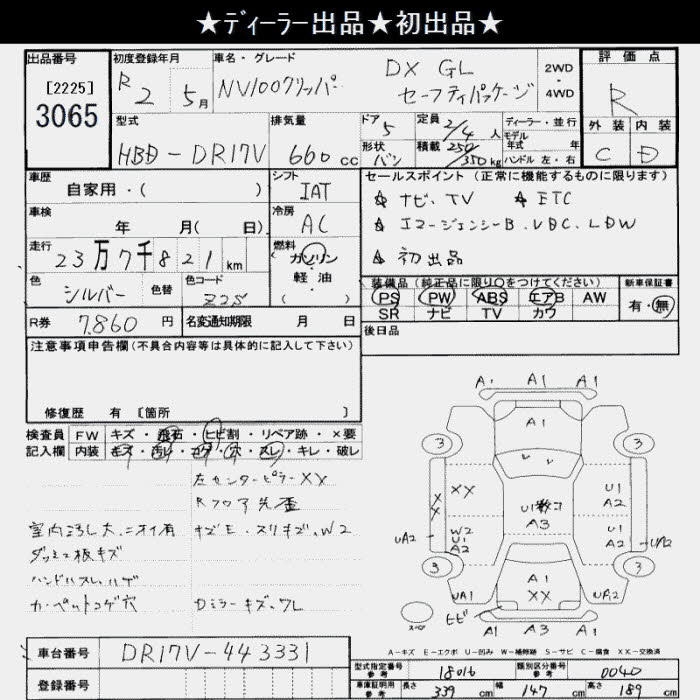 ★ディーラー出品★初出品★
出品番号
[2225]
3065
初度登録年月
R 2 5月
車名・グレード
NV100クリッパー DX GL
セーフティパッケージ
2WD
・
4WD
評価点
R
型式
HBD-DR17V
排気量
660 cc
ドア
5
形状
バン
定員
2/4人
積載
250/350kg
ディーラー・並行
モデル
年式 年
ハンドル 左・右
外装 内装
C D
車歴
自家用・( )
シフト
IAT
車検
年 月( 日)
冷房
AC
走行
23万7千821km
燃料
ガソリン
・
軽油
・
( )
色
シルバー
色替
色コード
Z2S
R券
7,860円
名変通知期限 月 日
セールスポイント(正常に機能するものに限ります)
☆ ナビ、TV ☆ ETC
☆ エマージェンシーB、VDC、LDW
☆ 初出品
装備品(純正品に限り○をつけてください)
PS PW ABS エアB AW
SR ナビ TV カワ
新車保証書
有・無
後日品
注意事項申告欄(不具合内容等は具体的に記入して下さい)
修復歴 有 [箇所 ]
検査員
記入欄
FW キズ・飛石・ヒビ割・リペア跡・×要
内装 キズ・汚レ・コゲ・穴・スレ・キレ・破レ
左センターピラーXX
Rフロア先歪
室内よごし大、ニオイ有 キズE・スリキズ、W2
ダッシュ板キズ
ハンドルスレ、ハゲ
カーペットコゲ穴
Dミラーキズ、ワレ
A1 A1 A1
A1
3 3
XX
XX
U1 A2
U1 A3
W2 U1 A2
U1 A2
UA2 UA2
3 3
UA1 UA2
A1
XX
ヒビ
スペア
A1 A3 A1
A-キズ E-エクボ U-凹み W-補修跡 S-サビ C-腐食 XX-交換済
車台番号
DR17V-443331
登録番号
型式指定番号
参考
18016
類別区分番号
参考
0040
車庫証明用
参考
長さ 339 cm 幅 147 cm 高さ 189 cm